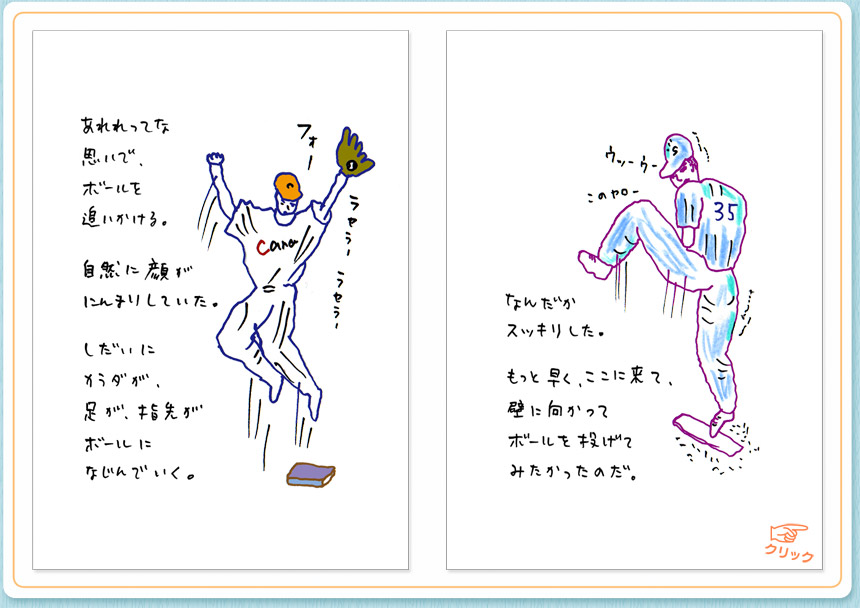 あれれってな
思いで、
ボールを
追いかける。
自然に顔が
にんまりしていた。
しだいに
カラダが、
足が、指先が
ボールに
なじんでいく。
フォー
ラセラー ラセラー
Cana
ウッーウー
このヤロー
S
35
なんだか
スッキリした。
もっと早く、ここに来て、
壁に向かって
ボールを投げて
みたかったのだ。
クリック